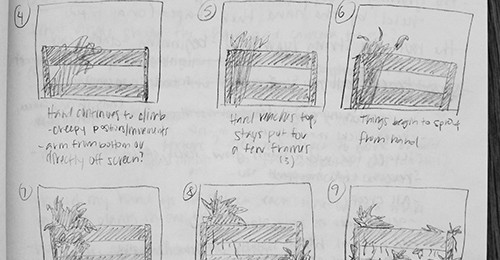 4
5
6
Hand continues to climb
- creepy positions/movements
- arm from bottom or
directly off screen?
Hand reaches top,
stays put for
a few frames
(3)
Things begin to sprout
from hand
7
8
9